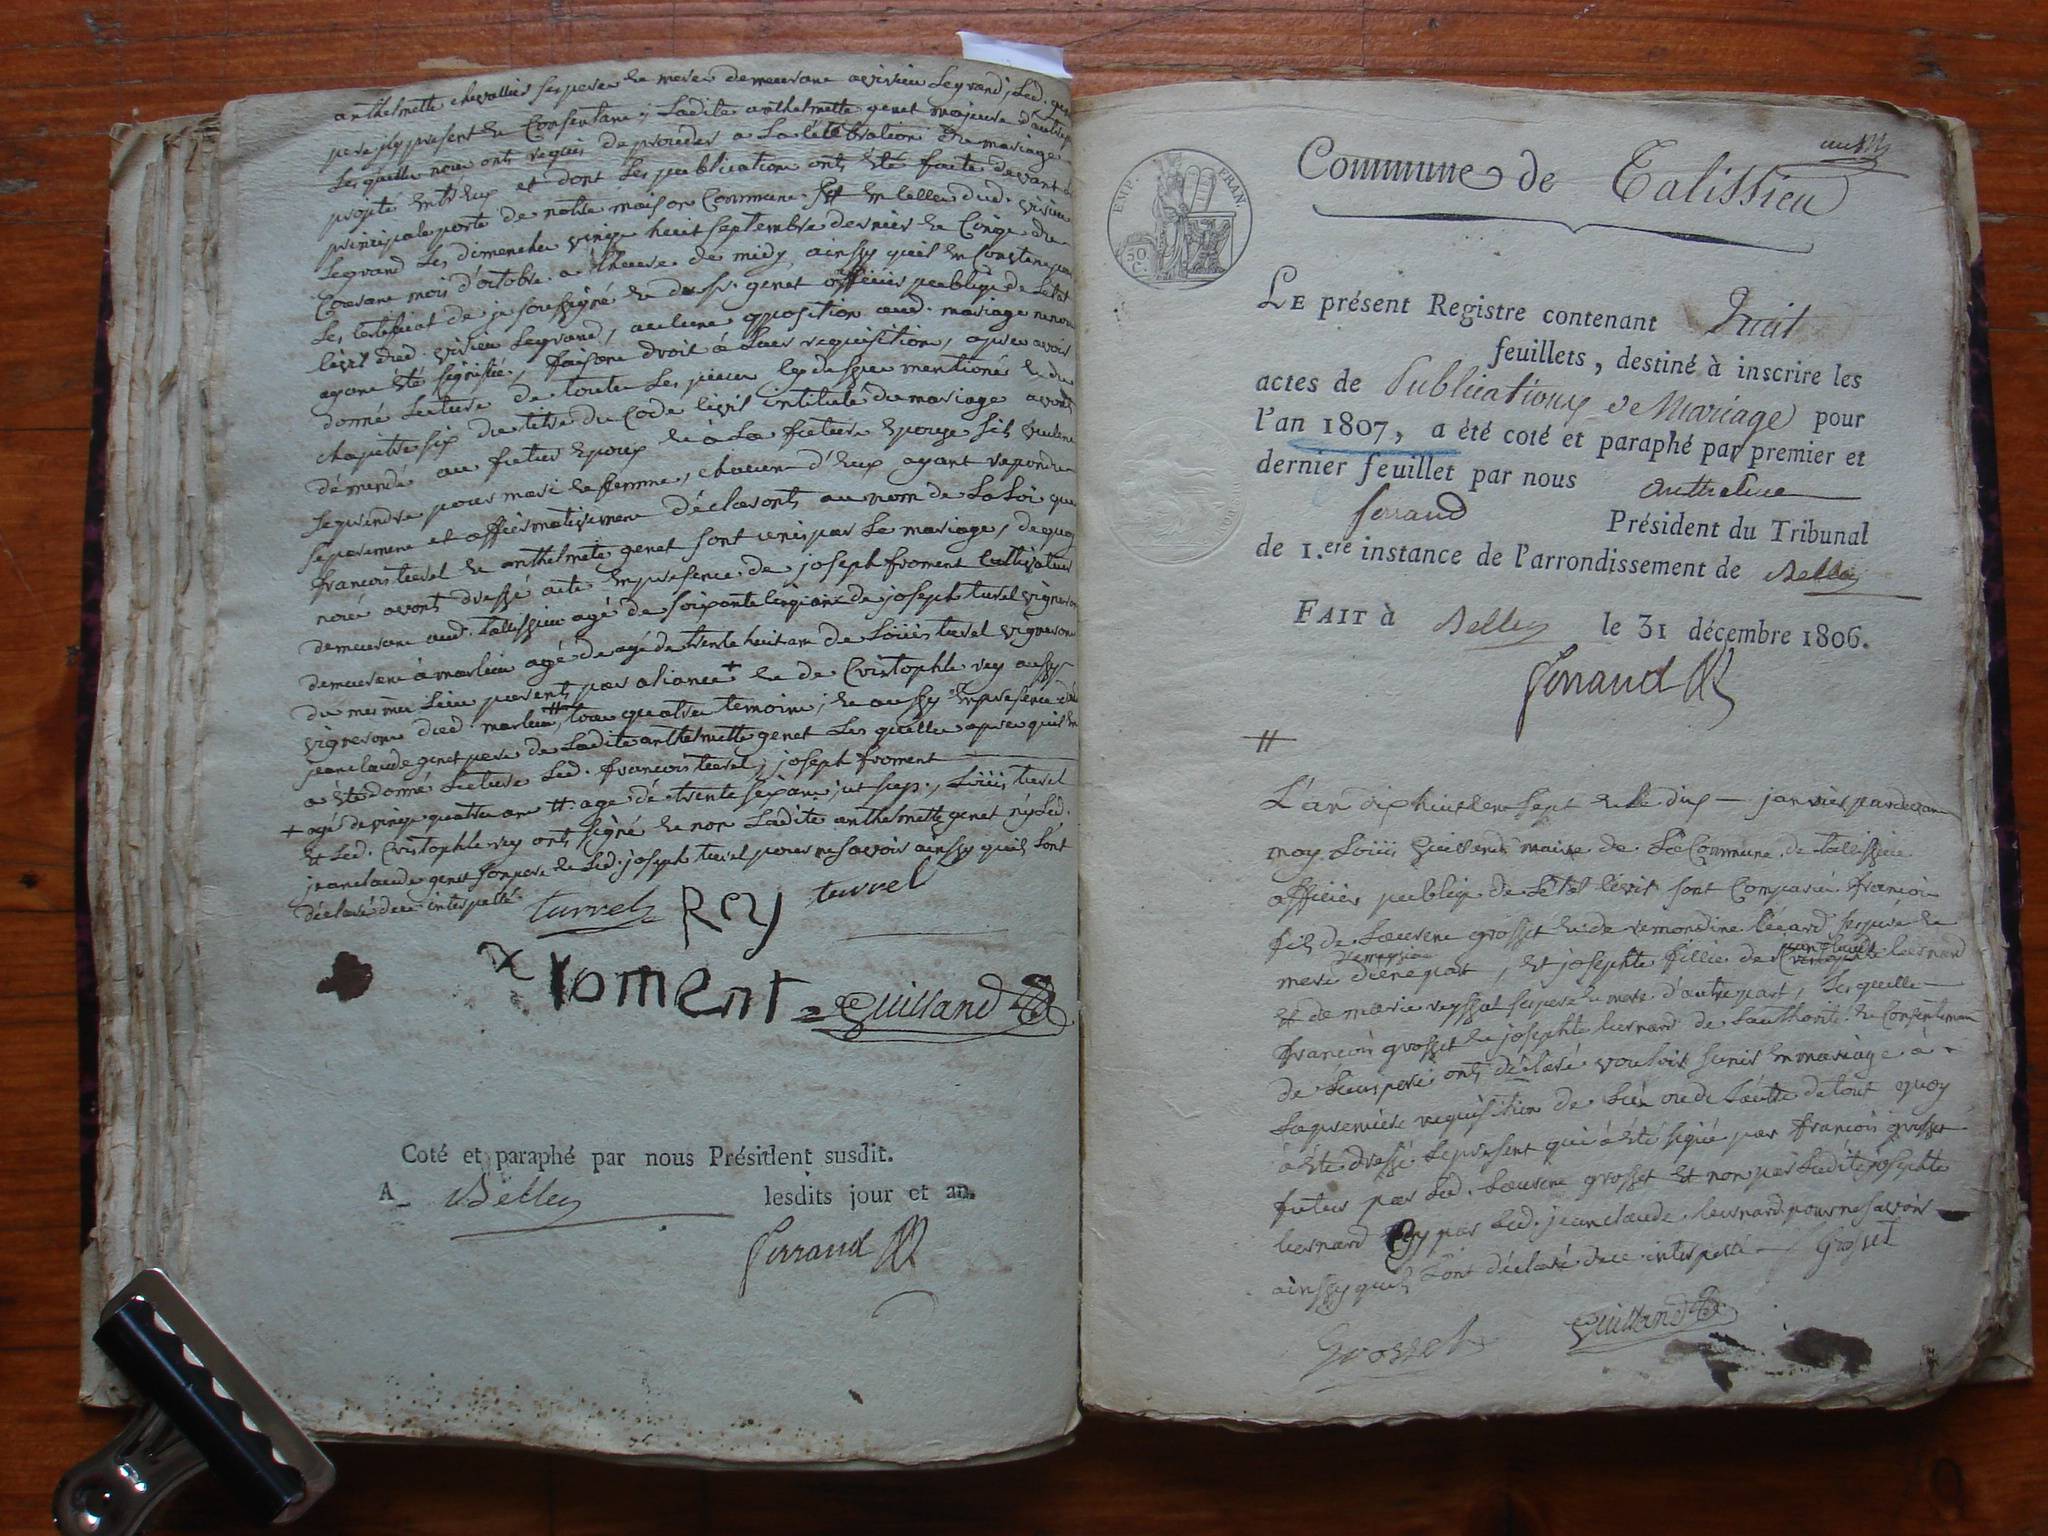 anthelmette chevallier ses pere et mere demeurant a virieu Legrand, Led. genet
pere icy present et Consentant; Ladite anthelmette genet majeure d'autre part
Lesquelles nous onts requis de proceder a La Célébration du mariage
projeté entr'eux et dont Les publications onts été faite devant la
principale porte de notre maison Commune et en celle dud. virieu
Legrand Les dimenche vingt huit septembre dernier et Cinq du
Courant mois d'octobre a L'heure de midy, ainssy quil en Conste par
Les Certificat de je soussigné et du Sr. genet officier publique de Letat
Civil dud. virieu Legrand, aucune opposition aud. mariage ne nous
ayant été signifié, faisant droit à Leur requisition, apres avoir
donné Lecture de toutes Les pieces cy dessus mentioné et du
chapitre six du titre du Code Civil intitulé du mariage avont
démendé au futur Epoux et à La future Epouze sils veulent
se prendre pour mari et femme, chacun d'eux ayant repondu
séparement et affirmativement déclaronts au nom de La Loi que
françois turrel et anthelmete genet sont unis par Le mariage, de quoy
nous avont dressé acte en presence de joseph froment Cultivateur
demeurant aud. tallissieu agé de soixante de joseph turrel vigneron
demeurant à marlieu agé de agé de trente huit ans de Loüis turrel vigneron
du meme Lieu parents par aliance + et de Cristophle rey aussy
vigneron dud. marlieu #, tous quatre temoins; et aussy en presence de
jean claude genet pere de Ladite anthelmette genet Les quelles apres quil en
a été donné Lecture Led. françois turrel, joseph froment
+ agé de vingt quatre ans # agé de trente sept ans, Loüis turrel
et Led. Cristophle rey onts signé et non Ladite anthelmette genet ny Led.
jean claude genet son pere et Led. joseph turrel pour ne savoir ainssy quils Lont
déclaré de ce interpellé.
turrel Rey turrel
froment Guilland
Coté et paraphé par nous Président susdit.
A Belley lesdits jour et an.
Ferrand
Commune de Talissieu
EMP. FRAN.
50 C.
LE présent Registre contenant huit
feuillets, destiné à inscrire les
actes de Publications de Mariage pour
l'an 1807, a été coté et paraphé par premier et
dernier feuillet par nous anthelme
ferrand Président du Tribunal
de 1.ere instance de l'arrondissement de Belley
FAIT à Belley le 31 décembre 1806.
Ferrand
#
L'an dix huit cent sept et le dix janvier par devant
moy Loüis Guilland maire de La Commune de tallissieu
officier publiq de Letat Civil sont Comparu françois
fils de Laurent grosset et de remondine ses pere et
mere d'une part, et josephte fillie de jean claude bernard
et de marie reyssat ses pere et mere d'autre part, Lesquelles
françois grosset et josephte bernard de Lauthorité et Consentement
de Leurs pere onts déclaré vouloir s'unir en mariage à
La premiere requisition de L'un ou de L'autre de tout quoy
à été dressé Le present qui à été signé par françois grosset
futur par Led. Laurent grosset et non par Ladite josephte
bernard ny par Led. jean claude bernard pour ne savoir
ainssy quils Lont déclaré de ce interpellé Grosset
Grosset Guilland